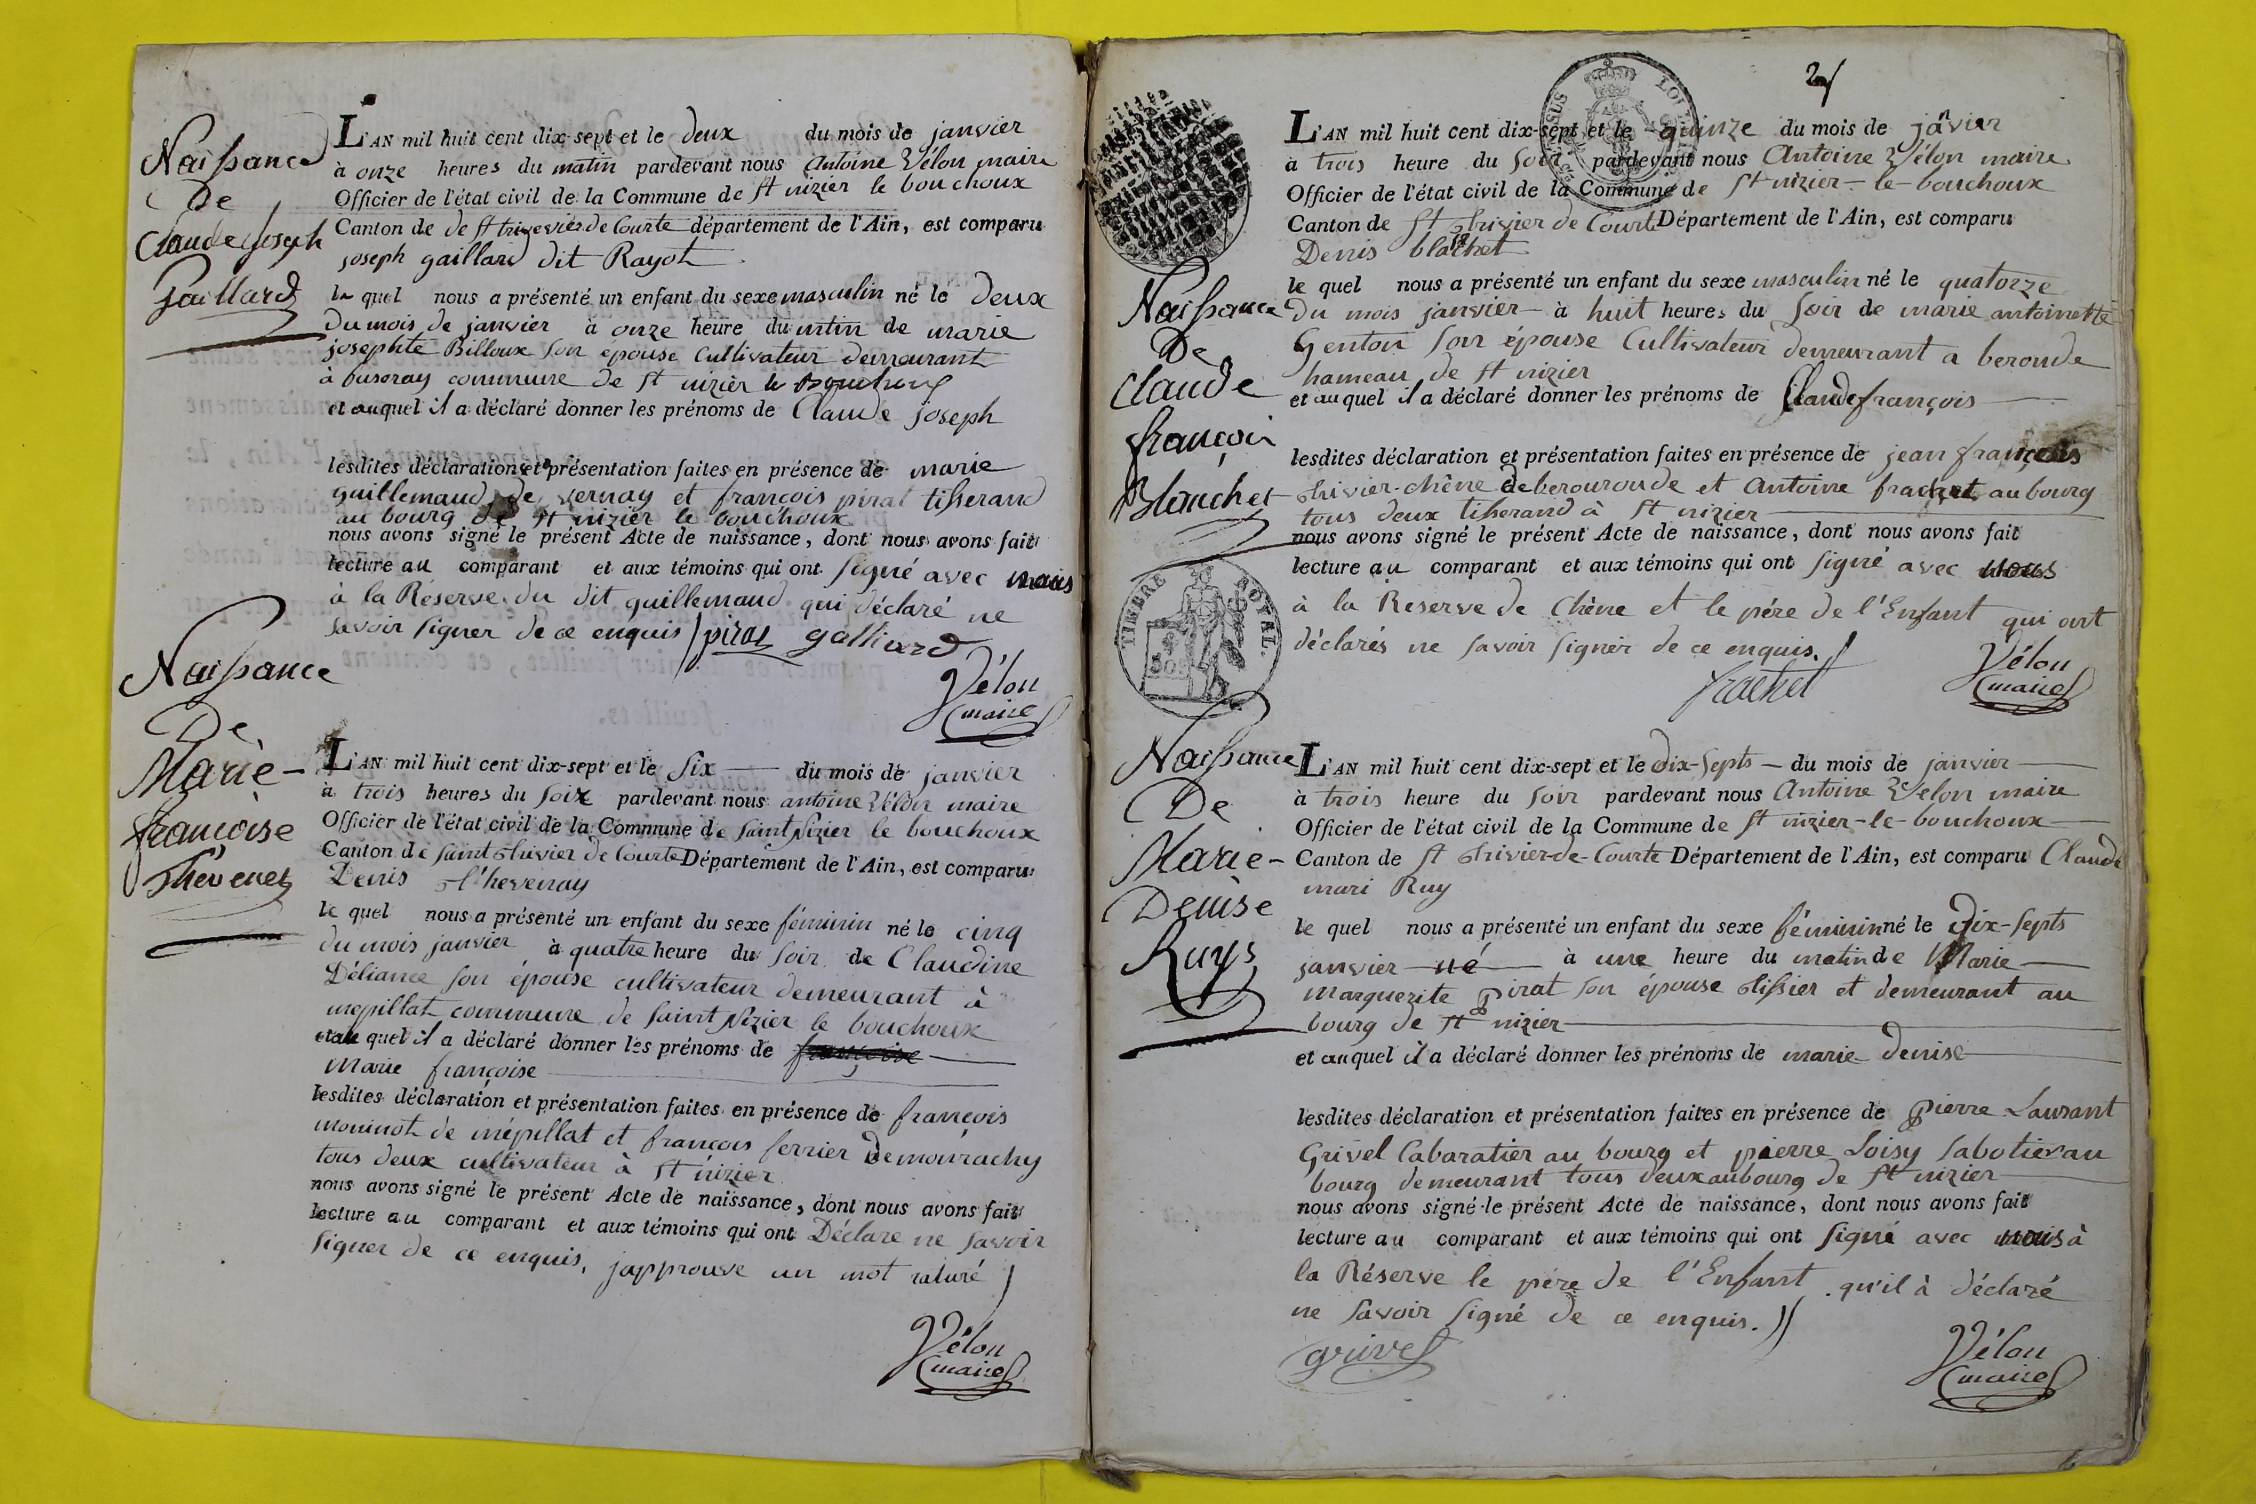 Naissance
De
Claude Joseph
Gaillard
L'AN mil huit cent dix-sept et le deux du mois de janvier
à onze heures du matin pardevant nous Antoine Vélon maire
Officier de l'état civil de la Commune de St nizier le bouchoux
Canton de de St trivier de Courte département de l'Ain, est comparu
joseph gaillard dit Rayot
le quel nous a présenté un enfant du sexe masculin né le deux
du mois de janvier à onze heure du mtin de marie
josephte Billoux son épouse Cultivateur demeurant
à commune de St nizier le bouchoux
et auquel il a déclaré donner les prénoms de Claude joseph
lesdites déclaration et présentation faites en présence de marie
guillemaud de vernay et françois pirat tisserand
au bourg de St nizier le bouchoux
nous avons signé le présent Acte de naissance, dont nous avons fait
lecture au comparant et aux témoins qui ont signé avec nous
à la Réserve du dit guillemaud qui déclaré ne
savoir signer de ce enquis pirat galliard
Vélon
maire
Naissance
De
Marie-
françoise
Thévenet
L'AN mil huit cent dix-sept et le six du mois de janvier
à trois heures du soir pardevant nous antoine Vélon maire
Officier de l'état civil de la Commune de saint Nizier le bouchoux
Canton de saint thivier de Courte Département de l'Ain, est comparu
Denis thevenay
le quel nous a présenté un enfant du sexe féminin né le cinq
du mois janvier à quatre heure du soir de Claudine
Déliance son épouse cultivateur demeurant à
mépillat commune de saint Nizier le bouchoux
et au quel il a déclaré donner les prénoms de françoise
Marie françoise
lesdites déclaration et présentation faites en présence de françois
moninot de mépillat et françois ferrier demourachy
tous deux cultivateur à St nizier
nous avons signé le présent Acte de naissance, dont nous avons fait
lecture au comparant et aux témoins qui ont Déclare ne savoir
signer de ce enquis, japprouve un mot raturé
Vélon
maire
2
TIMBRE ROYAL
Naissance
De
Claude
françois
Blanchet
L'AN mil huit cent dix-sept et le quinze du mois de jâvier
à trois heure du soir pardevant nous Antoine Vélon maire
Officier de l'état civil de la Commune de St nizier-le-bouchoux
Canton de St thivier de Courte Département de l'Ain, est comparu
Denis blachet
le quel nous a présenté un enfant du sexe masculin né le quatorze
du mois janvier à huit heures du soir de marie antoinette
Genton son épouse Cultivateur demeurant a beronde
hameau de St nizier
et au quel il a déclaré donner les prénoms de Claude françois
lesdites déclaration et présentation faites en présence de jean françois
thivier chêne de berouronde et Antoine frachet au bourg
tous deux tisserand à St nizier
nous avons signé le présent Acte de naissance, dont nous avons fait
lecture au comparant et aux témoins qui ont signé avec nous
à la Reserve de Chêne et le pére de l'Enfant qui ont
déclarés ne savoir signer de ce enquis.
frachet
Vélon
maire
Naissance
De
Marie-
Denise
Ruys
L'AN mil huit cent dix-sept et le dix-septs du mois de janvier
à trois heure du soir pardevant nous Antoine Velon maire
Officier de l'état civil de la Commune de St nizier-le-bouchoux
Canton de St thivier-de-Courte Département de l'Ain, est comparu Claude
mari Ruy
le quel nous a présenté un enfant du sexe féminin né le Dix-septs
janvier né à une heure du matin de Marie
marguerite pirat son épouse tissier et demeurant au
bourg de St nizier
et au quel il a déclaré donner les prénoms de marie denise
lesdites déclaration et présentation faites en présence de pierre Laurant
Grivel Cabaratier au bourg et pierre Loisy sabotier au
bourg demeurant tous deux au bourg de St nizier
nous avons signé le présent Acte de naissance, dont nous avons fait
lecture au comparant et aux témoins qui ont signé avec nous à
la Réserve le pére de l'Enfant qu'il à déclaré
ne savoir signé de ce enquis.
grivel
Vélon
maire